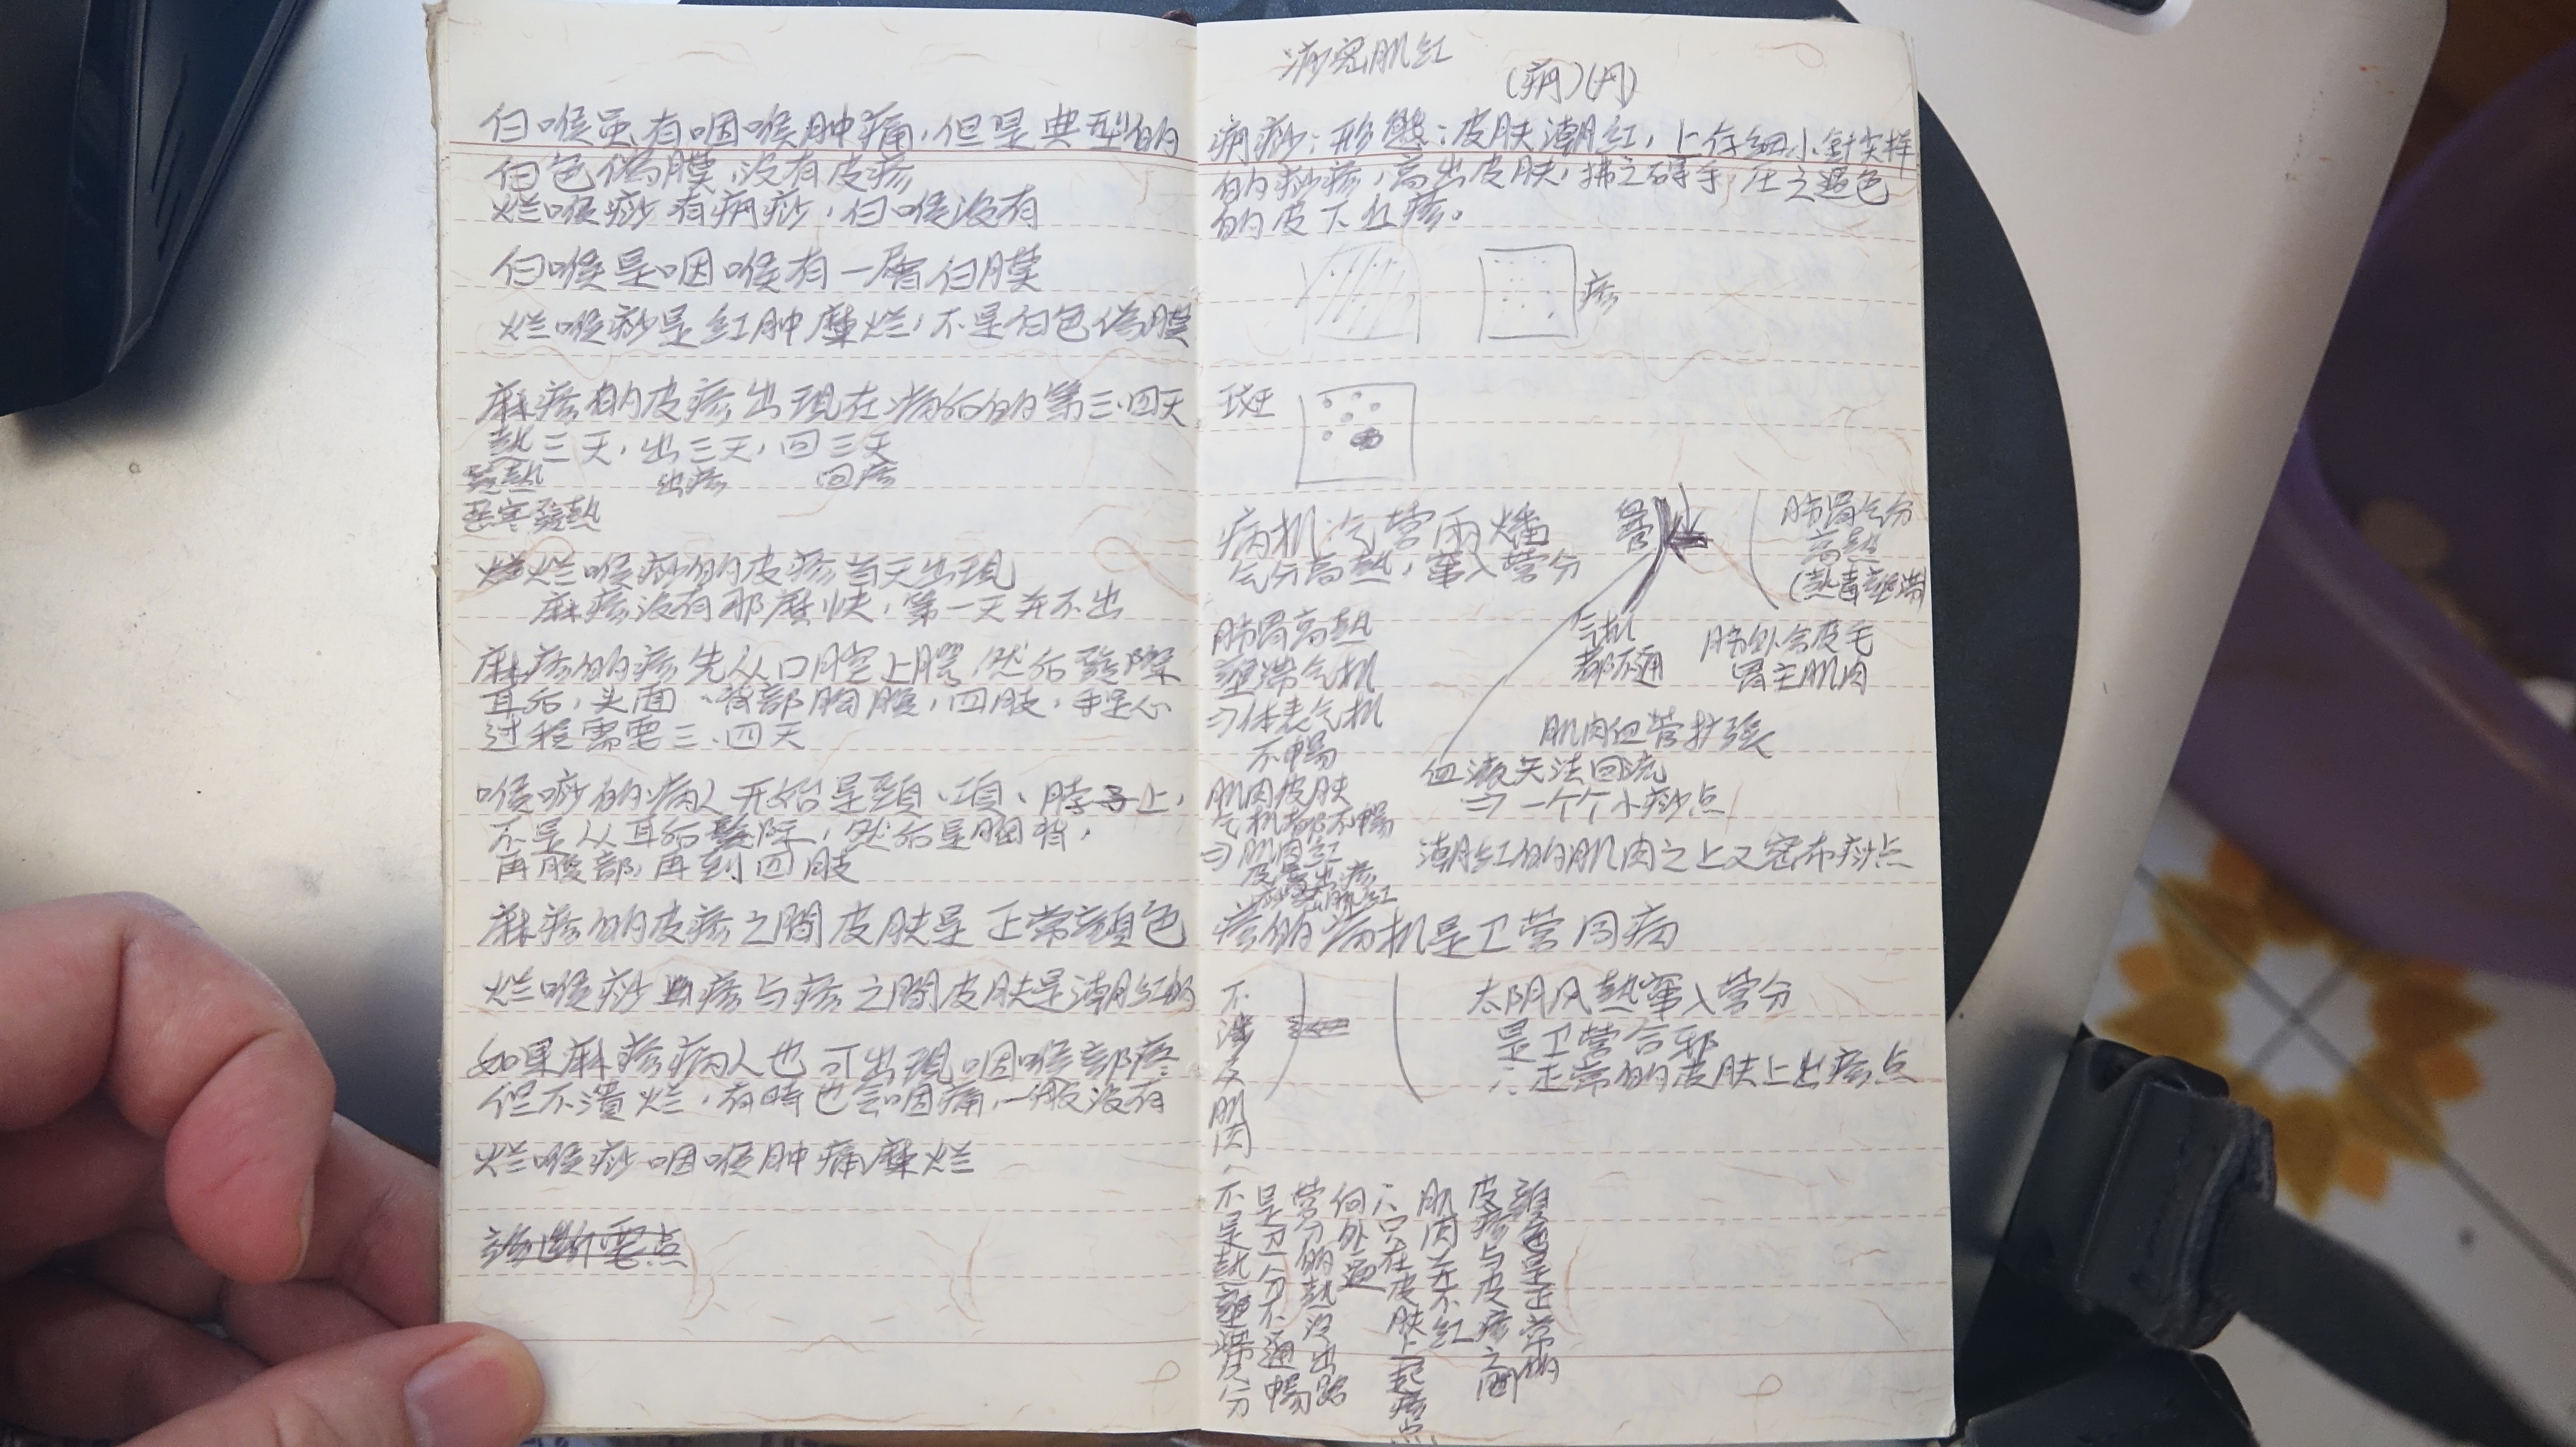 白喉虽有咽喉肿痛，但是典型的
白色偽膜，没有皮疹
烂喉痧有痧，白喉没有
白喉是咽喉有一層白膜
烂喉痧是红肿糜烂，不是白色偽膜
麻疹的皮疹出現在病后的第三、四天
熱三天，出三天，回三天
發熱 出疹 回疹
恶寒發熱
烂喉痧的皮疹首天出現
麻疹没有那麼快，第一天并不出
麻疹的疹先从口腔上腭，然后發際
耳后，头面、背部胸腹，四肢，手足心
过程需要三、四天
喉痧的病人开始是頸、項、脖子上，
不是从耳后髮际，然后是胸背，
再腹部，再到四肢
麻疹的皮疹之間皮肤是正常顏色
烂喉痧疹与疹之間皮肤是潮红的
如果麻疹病人也可出現咽喉部疼
但不潰烂，有時也会咽痛，一般没有
烂喉痧咽喉肿痛糜烂
診断要点
痧密肌红
痧：形態：皮肤潮红，上有细小針尖样
的痧疹，高出皮肤，拂之碍手，压之退色
的皮下红疹。
疹
斑
病机 气营兩燔
气分高熱，窜入营分
营
肺胃气分
高熱
(熱毒壅滞
肺胃高熱
壅滞气机
⇒体表气机
不暢
气机
都不通
肺外合皮毛
胃主肌肉
肌肉血管扩張
血液无法回流
⇒一个个小痧点
肌肉皮肤
气机都不暢
⇒肌肉红
皮膚出疹
潮红的肌肉之上又密布痧点
疹的病机是卫营同病
不涉及肌肉
太阴风熱窜入营分
是卫营合邪
∴正常的皮肤上出疹点
顏色是正常的
皮疹与皮疹之間
肌肉并不红
∴只在皮肤上起疹点
向外透
营分的熱没出路
是分不通暢
不是熱壅滞气分